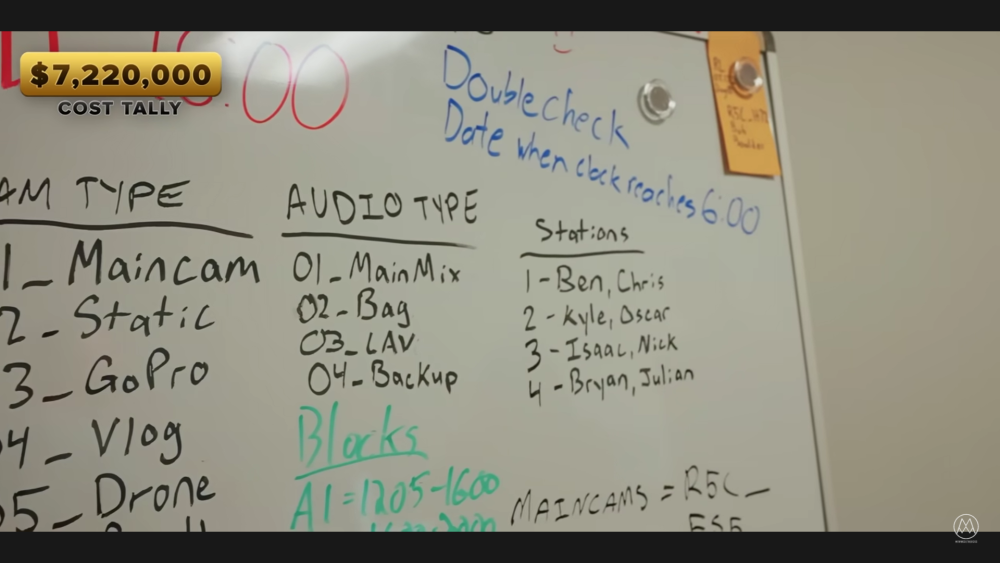 $7,220,000
COST TALLY
6:00
Double check
Date when clock reaches 6:00
R5C_
AM TYPE
1_Maincam
2_Static
3_GoPro
04_Vlog
05_Drone
AUDIO TYPE
01_MainMix
02-Bag
03_LAV
04-Backup
Stations
1-Ben, Chris
2-Kyle, Oscar
3-Isaac, Nick
4-Bryan, Julian
Blocks
A1=1205-1600
MAINCAMS = R5C_